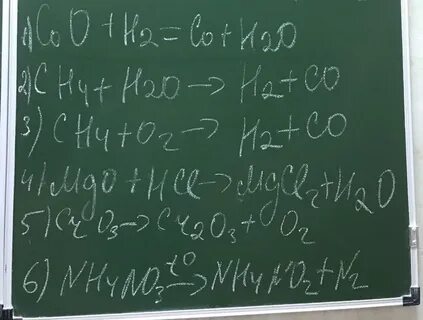 1) CoO + H2 = Co + H2O
2) CH4 + H2O → H2 + CO
3) CH4 + O2 → H2 + CO
4) MgO + HCl → MgCl2 + H2O
5) CrO3 → Cr2O3 + O2
6) NH4NO3 t0→ NH4NO2 + N2